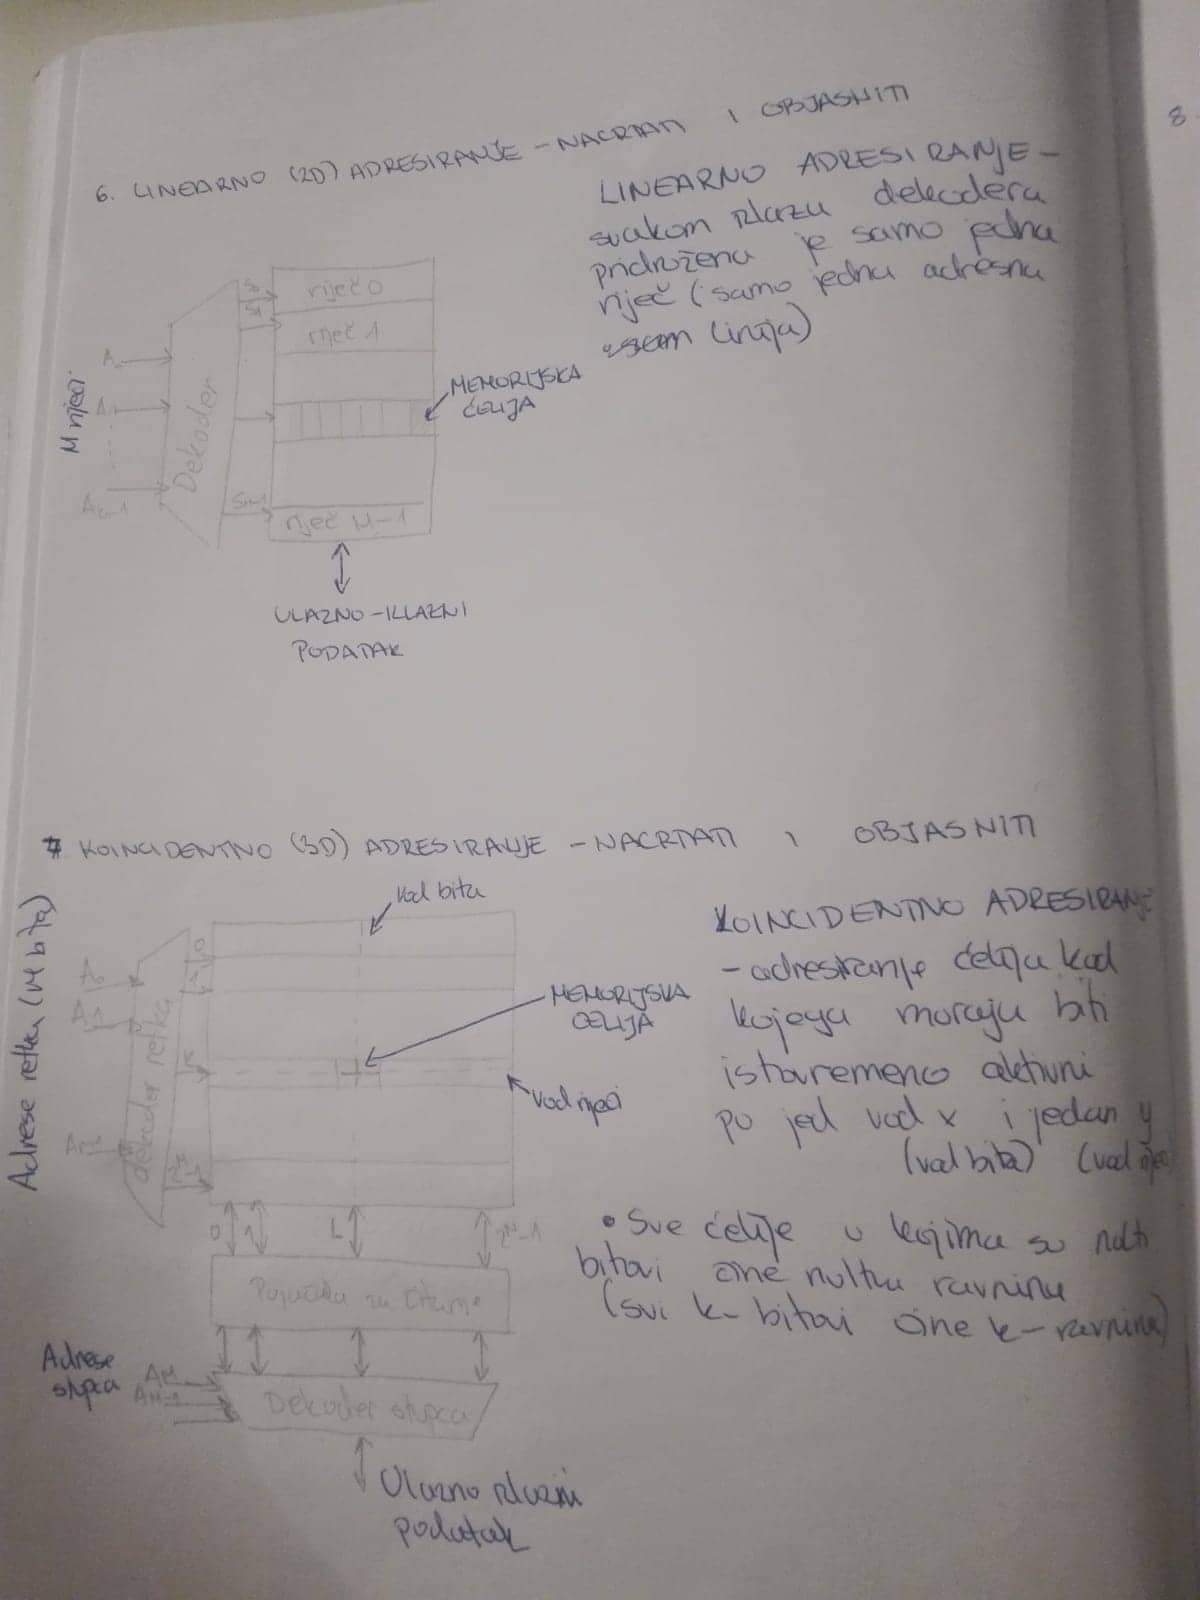 6. LINEARNO (2D) ADRESIRANJE - NACRTATI I OBJASNITI
LINEARNO ADRESIRANJE -
svakom izlazu dekodera
pridružena je samo jedna
riječ (samo jedna adresna
linija)
riječ 0
riječ 1
MEMORIJSKA
ĆELIJA
M riječi
Dekoder
riječ M-1
ULAZNO-IZLAZNI
PODATAK
7 KOINCIDENTNO (3D) ADRESIRANJE - NACRTATI I OBJASNITI
Vod bita
KOINCIDENTNO ADRESIRANJE
- adresiranje ćelija kod
kojega moraju biti
istovremeno aktivni
po jed vod x i jedan y
(vod bita) (vod riječi
MEMORIJSKA
ĆELIJA
Vod riječi
Adrese retka (M bita)
A0
A1
dekoder retka
0 1 L
• Sve ćelije u kojima su nulti
bitovi čine nultu ravninu
(svi k-bitovi čine k-ravninu)
Pojačala za čitanje
Adrese
stupca
AM
Dekoder stupca
Ulazno izlazni
podatak
8.